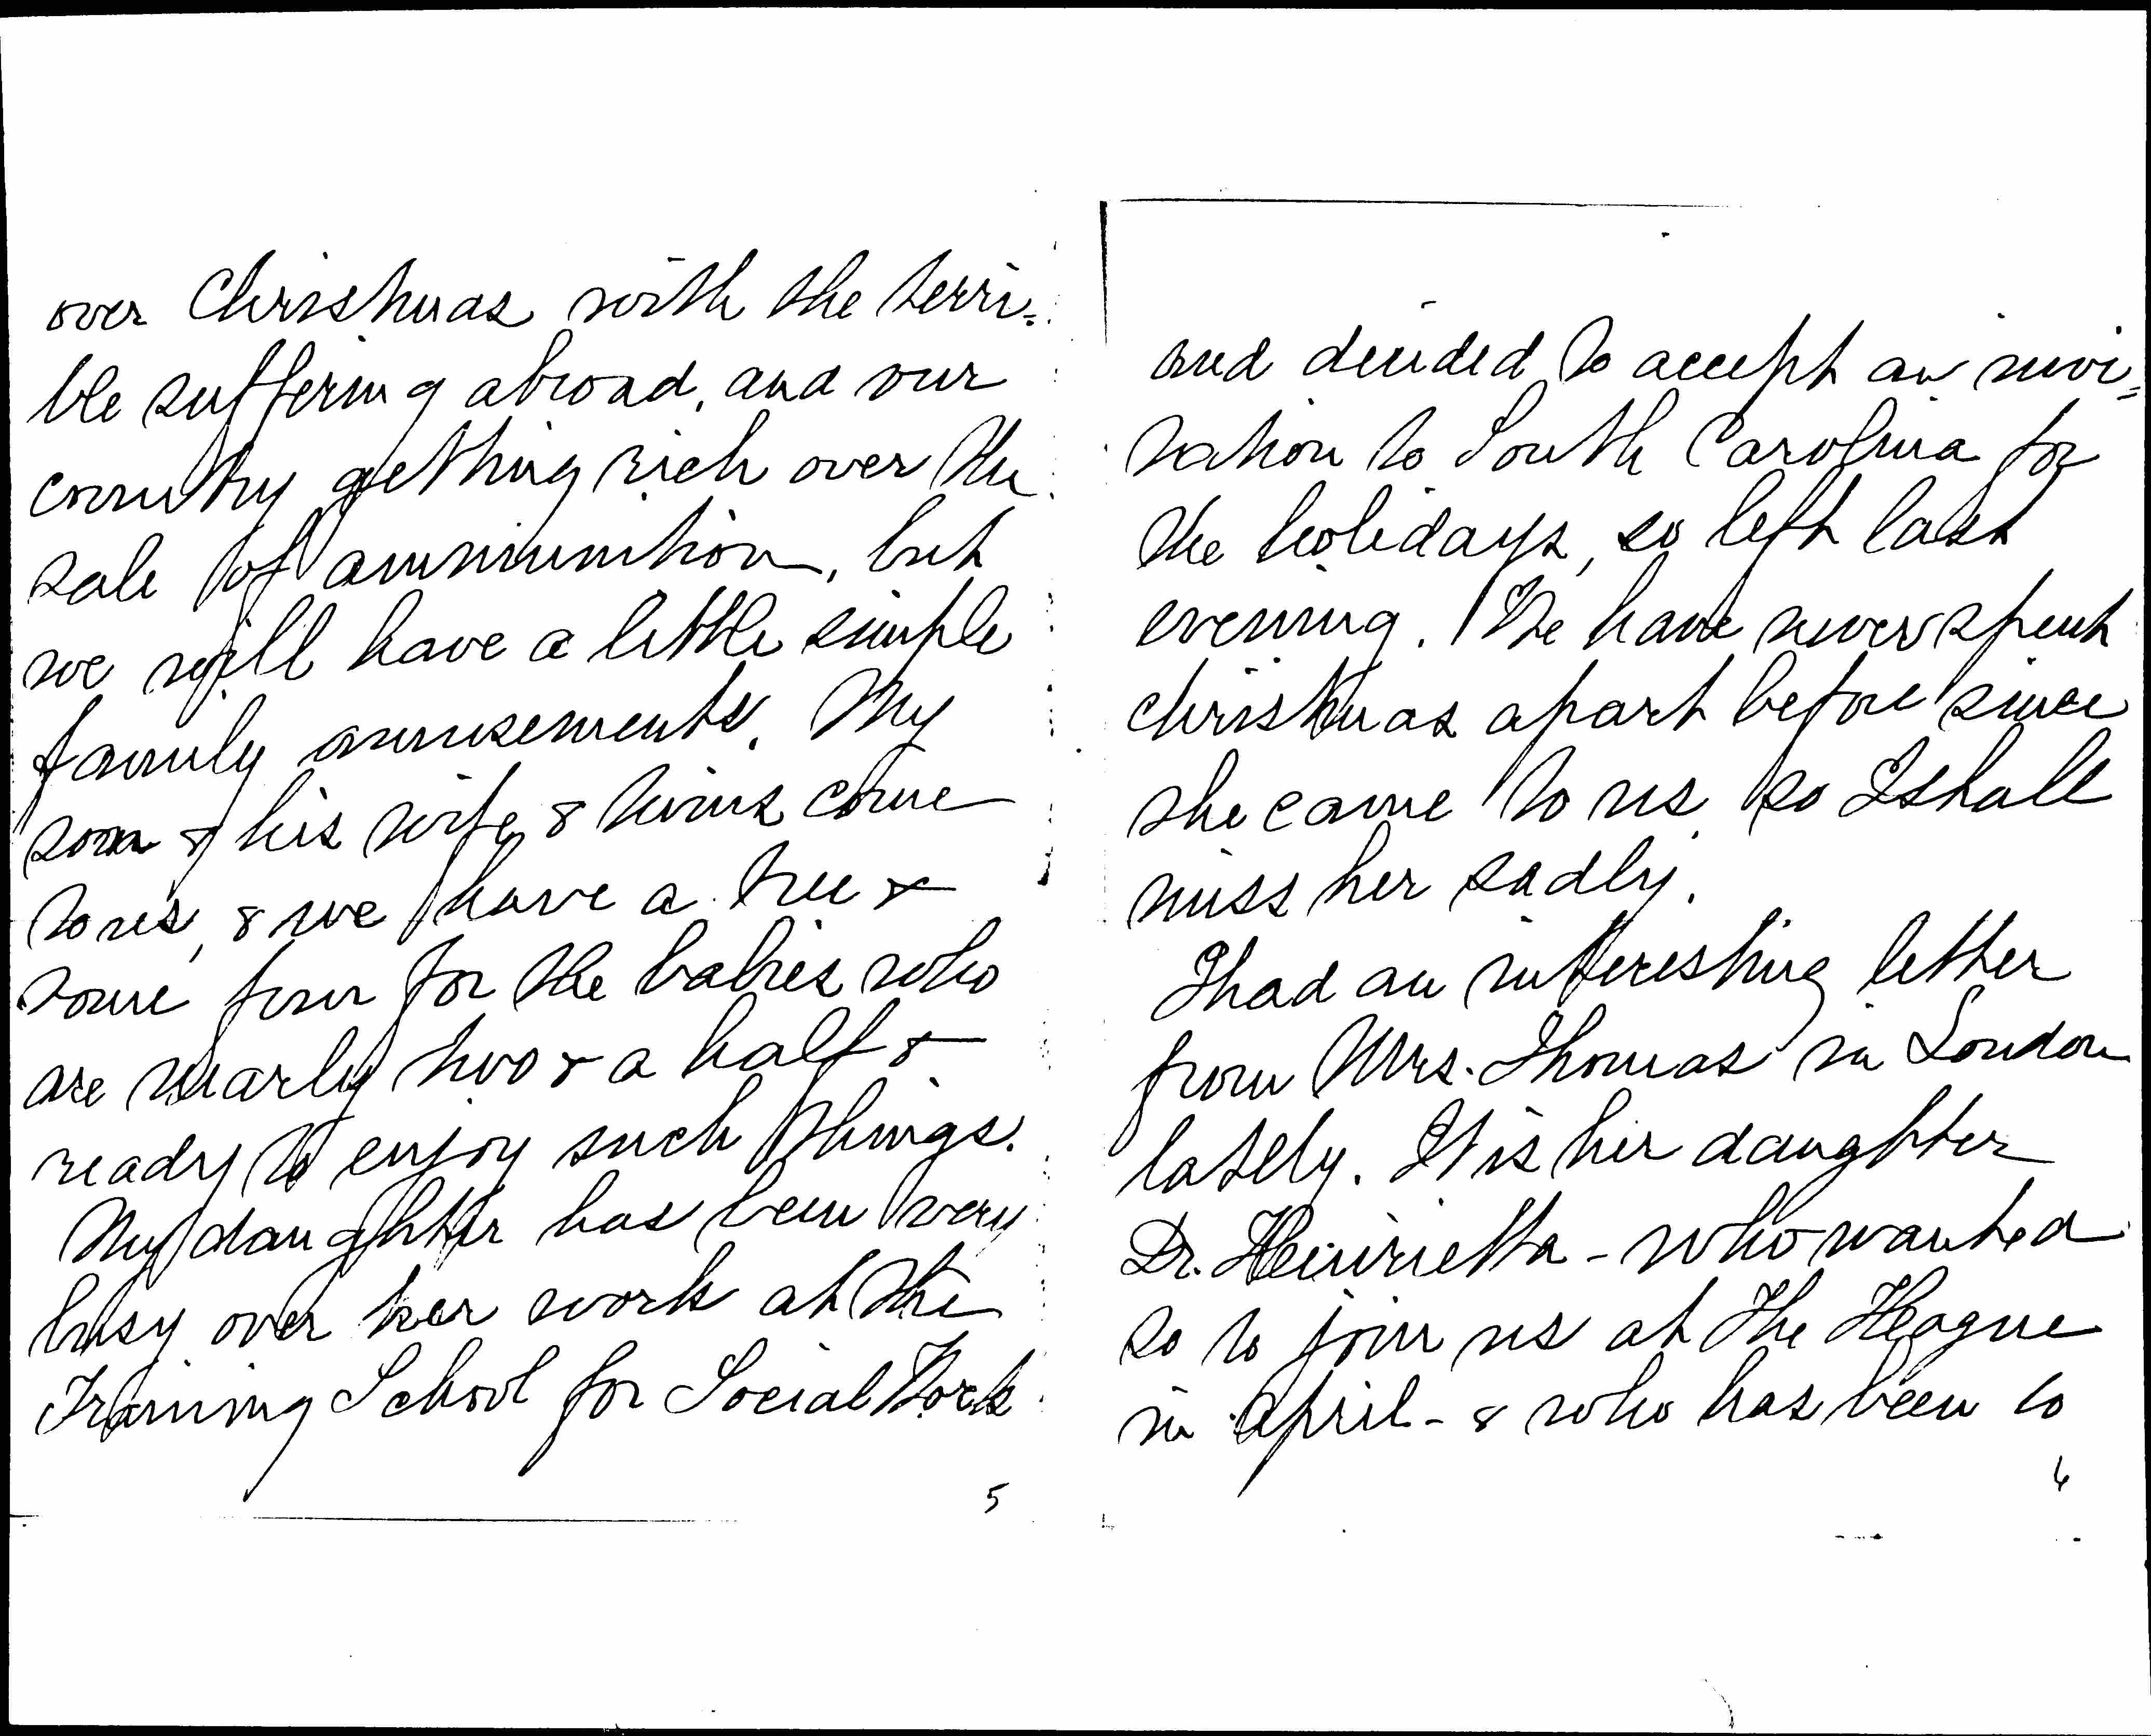 over Christmas with the terri=
ble suffering abroad, and our
country getting rich over the
sale of ammunition, but
we will have a little simple
family amusements. My
son & his wife & twins come
to us, & we have a tree &
some fun for the babies who
are nearly two & a half &
ready to enjoy such things.
My daughter has been very
busy over her work at the
Training School for Social Work
5
and decided to accept an invi=
tation to South Carolina for
the holidays, so left last
evening. We have never spent
Christmas apart before since
she came to us, so I shall
miss her sadly.
I had an interesting letter
from Mrs. Thomas in London
lately. It is her daughter
Dr. Henrietta - who wanted
so to join us at The Hague
in April - & who has been to
6